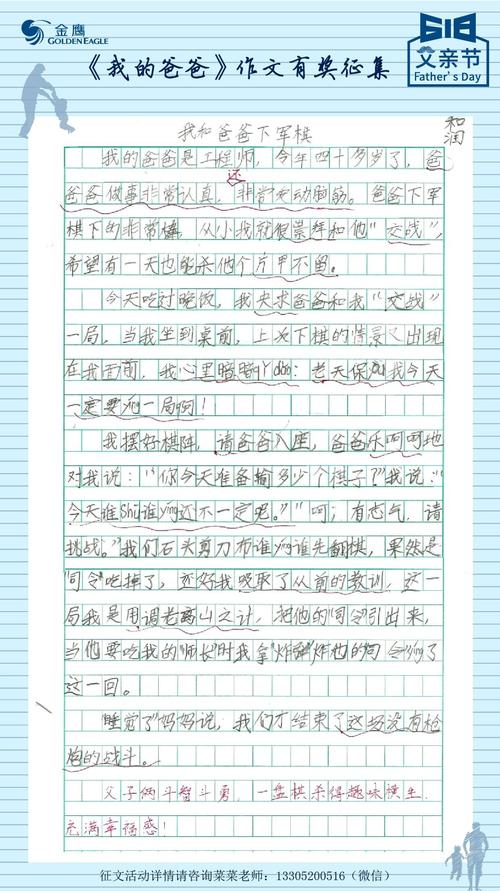 金鹰
GOLDEN EAGLE
618
父亲节
Father's Day
《我的爸爸》作文有奖征集
和润
我和爸爸下军棋
我的爸爸是工程师，今年四十多岁了，爸
还
爸做事非常认真，非常爱动脑筋。爸爸下军
棋下的非常棒，从小我就很崇拜和他“交战”，
希望有一天也能杀他个片甲不留。
今天吃过晚饭，我央求爸爸和我“交战”
一局，当我坐到桌前，上次下棋的情景又出现
在我面前，我心里暗暗：老天保我今天
一定要yíng一局啊！
我摆好棋阵，请爸爸入座，爸爸乐呵呵地
对我说：“你今天准备输多少个棋子？”我说：“
今天谁shū谁yíng还不一定呢。”“呵；有志气，请
挑战。”我们石头剪刀布谁yíng谁先翻棋，果然是
“司令”吃掉了，还好我吸取了从前的教训，这一
局我是用调老离山之计，把他的“司令”引出来，
当他要吃我的“师长”时我拿“炸弹”炸他的司令yíng了
这一回。
“睡觉了”妈妈说，我们才结束了这场没有枪
炮的战斗。
父子俩斗智斗勇，一盘棋杀得趣味横生，
充满幸福感！
征文活动详情请咨询菜菜老师：13305200516（微信）